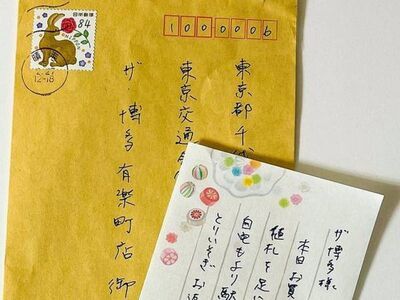 日本郵便
84
NIPPON
12-18
1000006
東京都千代
東京交通会
ザ・博多有楽町店 御
ザ博多様
本日お買
値札を足に
自宅もより駅
とりいそぎ お返